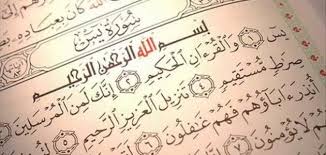 ٱللَّهَ كَانَ بِعِبَادِهِۦ
سُورَةُ يسٓ
بِسْمِ ٱللَّهِ ٱلرَّحْمَٰنِ ٱلرَّحِيمِ
يسٓ ١ وَٱلْقُرْءَانِ ٱلْحَكِيمِ ٢ إِنَّكَ لَمِنَ ٱلْمُرْسَلِينَ
صِرَٰطٍ مُّسْتَقِيمٍ ٤ تَنزِيلَ ٱلْعَزِيزِ ٱلرَّحِيمِ ٥
أُنذِرَ ءَابَآؤُهُمْ فَهُمْ غَٰفِلُونَ ٦
لَا يُؤْمِنُونَ ٧